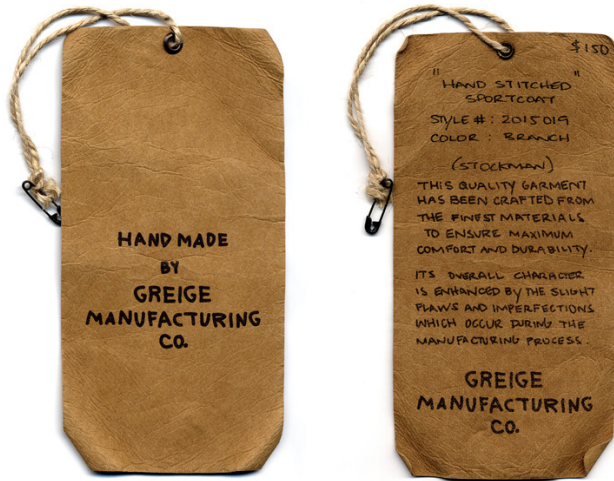 HAND MADE
BY
GREIGE
MANUFACTURING
CO.
$150
"HAND STITCHED"
SPORTCOAT
STYLE #: 2015019
COLOR : BRANCH
(STOCKMAN)
THIS QUALITY GARMENT
HAS BEEN CRAFTED FROM
THE FINEST MATERIALS
TO ENSURE MAXIMUM
COMFORT AND DURABILITY.
ITS OVERALL CHARACTER
IS ENHANCED BY THE SLIGHT
FLAWS AND IMPERFECTIONS
WHICH OCCUR DURING THE
MANUFACTURING PROCESS.
GREIGE
MANUFACTURING
CO.